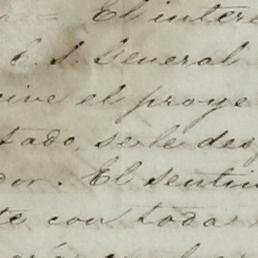 El intere
E. S. General
cive el proye
tado, se le des
dor. El sentim
te con toda